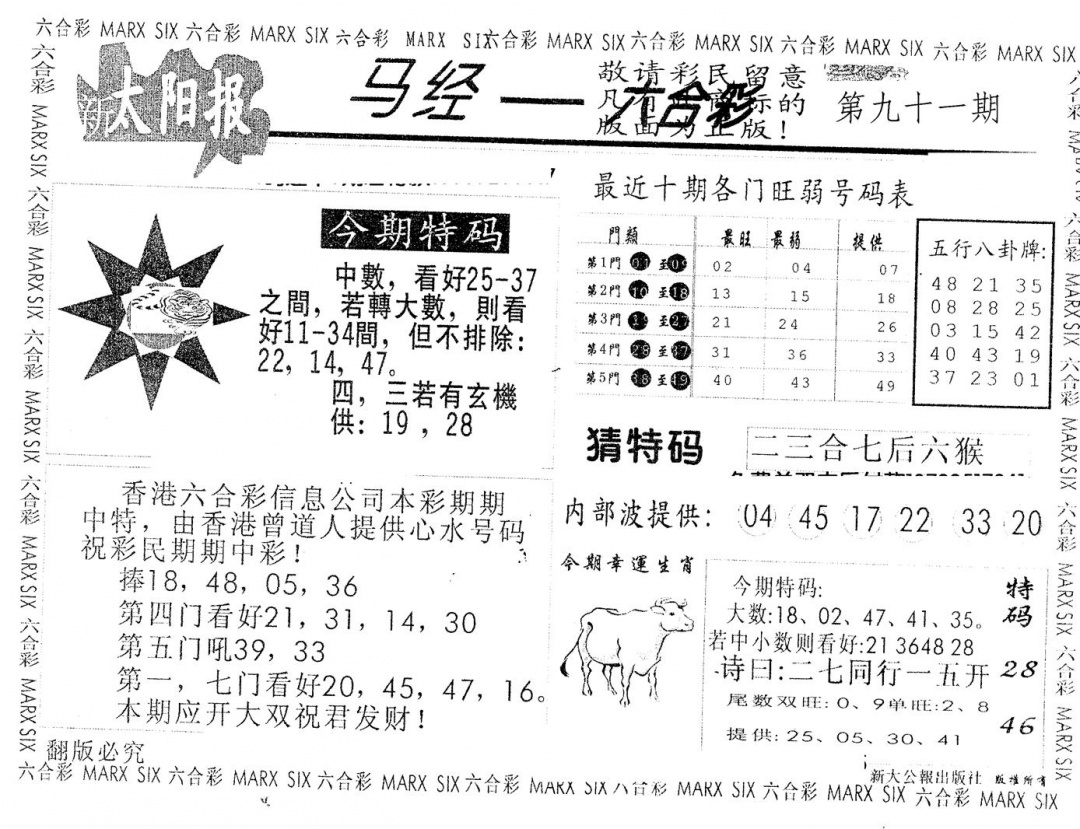 六合彩 MARX SIX 六合彩 MARX SIX 六合彩 MARX SIX 六合彩 MARX SIX 六合彩 MARX SIX 六合彩 MARX SIX 六合彩 MARX SIX
六合彩 MARX SIX 六合彩 MARX SIX 六合彩 MARX SIX 六合彩 MARX SIX 六合彩 MARX SIX
新太阳报
马经——六合彩
敬请彩民留意
的
版面为正版!
第九十一期
今期特码
中數,看好25-37
之間,若轉大數,則看
好11-34間,但不排除:
22,14,47。
四,三若有玄機
供:19,28
最近十期各门旺弱号码表
門類 最旺 最弱 提供
第1門 01 至 09 02 04 07
第2門 10 至 18 13 15 18
第3門 19 至 27 21 24 26
第4門 28 至 37 31 36 33
第5門 38 至 49 40 43 49
五行八卦牌:
48 21 35
08 28 25
03 15 42
40 43 19
37 23 01
猜特码
二三合七后六猴
香港六合彩信息公司本彩期期
中特,由香港曾道人提供心水号码
祝彩民期期中彩!
捧18,48,05,36
第四门看好21,31,14,30
第五门吼39,33
第一,七门看好20,45,47,16。
本期应开大双祝君发财!
内部波提供: 04 45 17 22 33 20
今期幸運生肖
今期特码:
大数:18、02、47、41、35。
若中小数则看好:21 36 48 28
诗曰:二七同行一五开
尾数双旺:0、9单旺:2、8
提供:25、05、30、41
特
码
28
46
翻版必究
新大公報出版社 版権所有
六合彩 MARX SIX 六合彩 MARX SIX 六合彩 MARX SIX 六合彩 MARX SIX 六合彩 MARX SIX 六合彩 MARX SIX 六合彩 MARX SIX
六合彩 MARX SIX 六合彩 MARX SIX 六合彩 MARX SIX 六合彩 MARX SIX